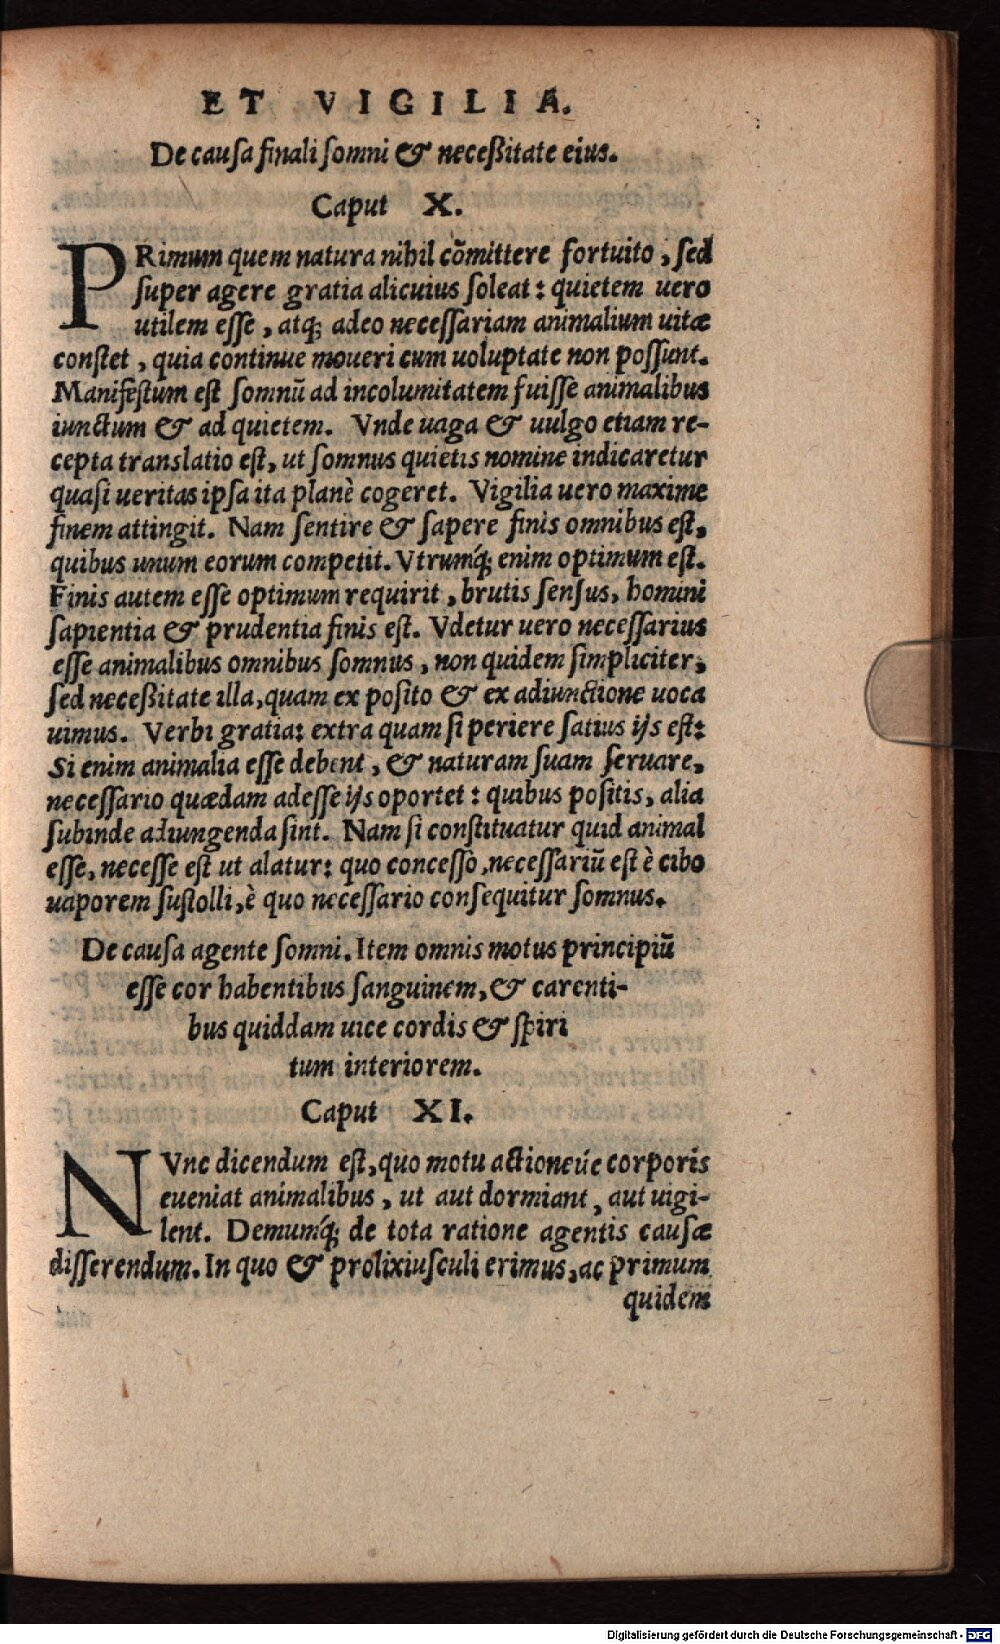 ET VIGILIA.
De causa finali somni & neceßitate eius.
Caput X.
PRimum quem natura nihil cõmittere fortuito, sed
super agere gratia alicuius soleat: quietem uero
utilem esse, atq; adeo necessariam animalium uitæ
constet, quia continue moueri cum uoluptate non possunt.
Manifestum est somnũ ad incolumitatem fuisse animalibus
iunctum & ad quietem. Vnde uaga & uulgo etiam re-
cepta translatio est, ut somnus quietis nomine indicaretur
quasi ueritas ipsa ita planè cogeret. Vigilia uero maxime
finem attingit. Nam sentire & sapere finis omnibus est,
quibus unum eorum competit. Vtrumq́; enim optimum est.
Finis autem esse optimum requirit, brutis sensus, homini
sapientia & prudentia finis est. Vdetur uero necessarius
esse animalibus omnibus somnus, non quidem simpliciter,
sed neceßitate illa, quam ex posito & ex adiunctione uoca
uimus. Verbi gratia: extra quam si periere satius ijs est:
Si enim animalia esse debent, & naturam suam seruare,
necessario quædam adesse ijs oportet: quibus positis, alia
subinde adiungenda sint. Nam si constituatur quid animal
esse, necesse est ut alatur: quo concesso, necessariũ est è cibo
uaporem sustolli, è quo necessario consequitur somnus.
De causa agente somni. Item omnis motus principiũ
esse cor habentibus sanguinem, & carenti-
bus quiddam uice cordis & spiri
tum interiorem.
Caput XI.
NVnc dicendum est, quo motu actioneúe corporis
eueniat animalibus, ut aut dormiant, aut uigi-
lent. Demumq́; de tota ratione agentis causæ
disserendum. In quo & prolixiusculi erimus, ac primum
quidem
Digitalisierung gefördert durch die Deutsche Forschungsgemeinschaft - DFG